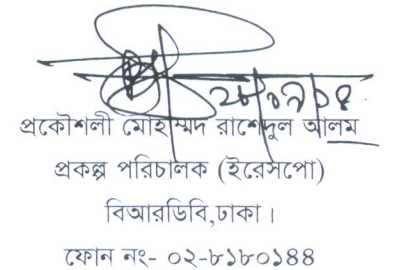 প্রকৌশলী মোহাম্মদ রাশেদুল আলম
প্রকল্প পরিচালক (ইরেসপো)
বিআরডিবি,ঢাকা।
ফোন নং- ০২-৮১৮০১৪৪